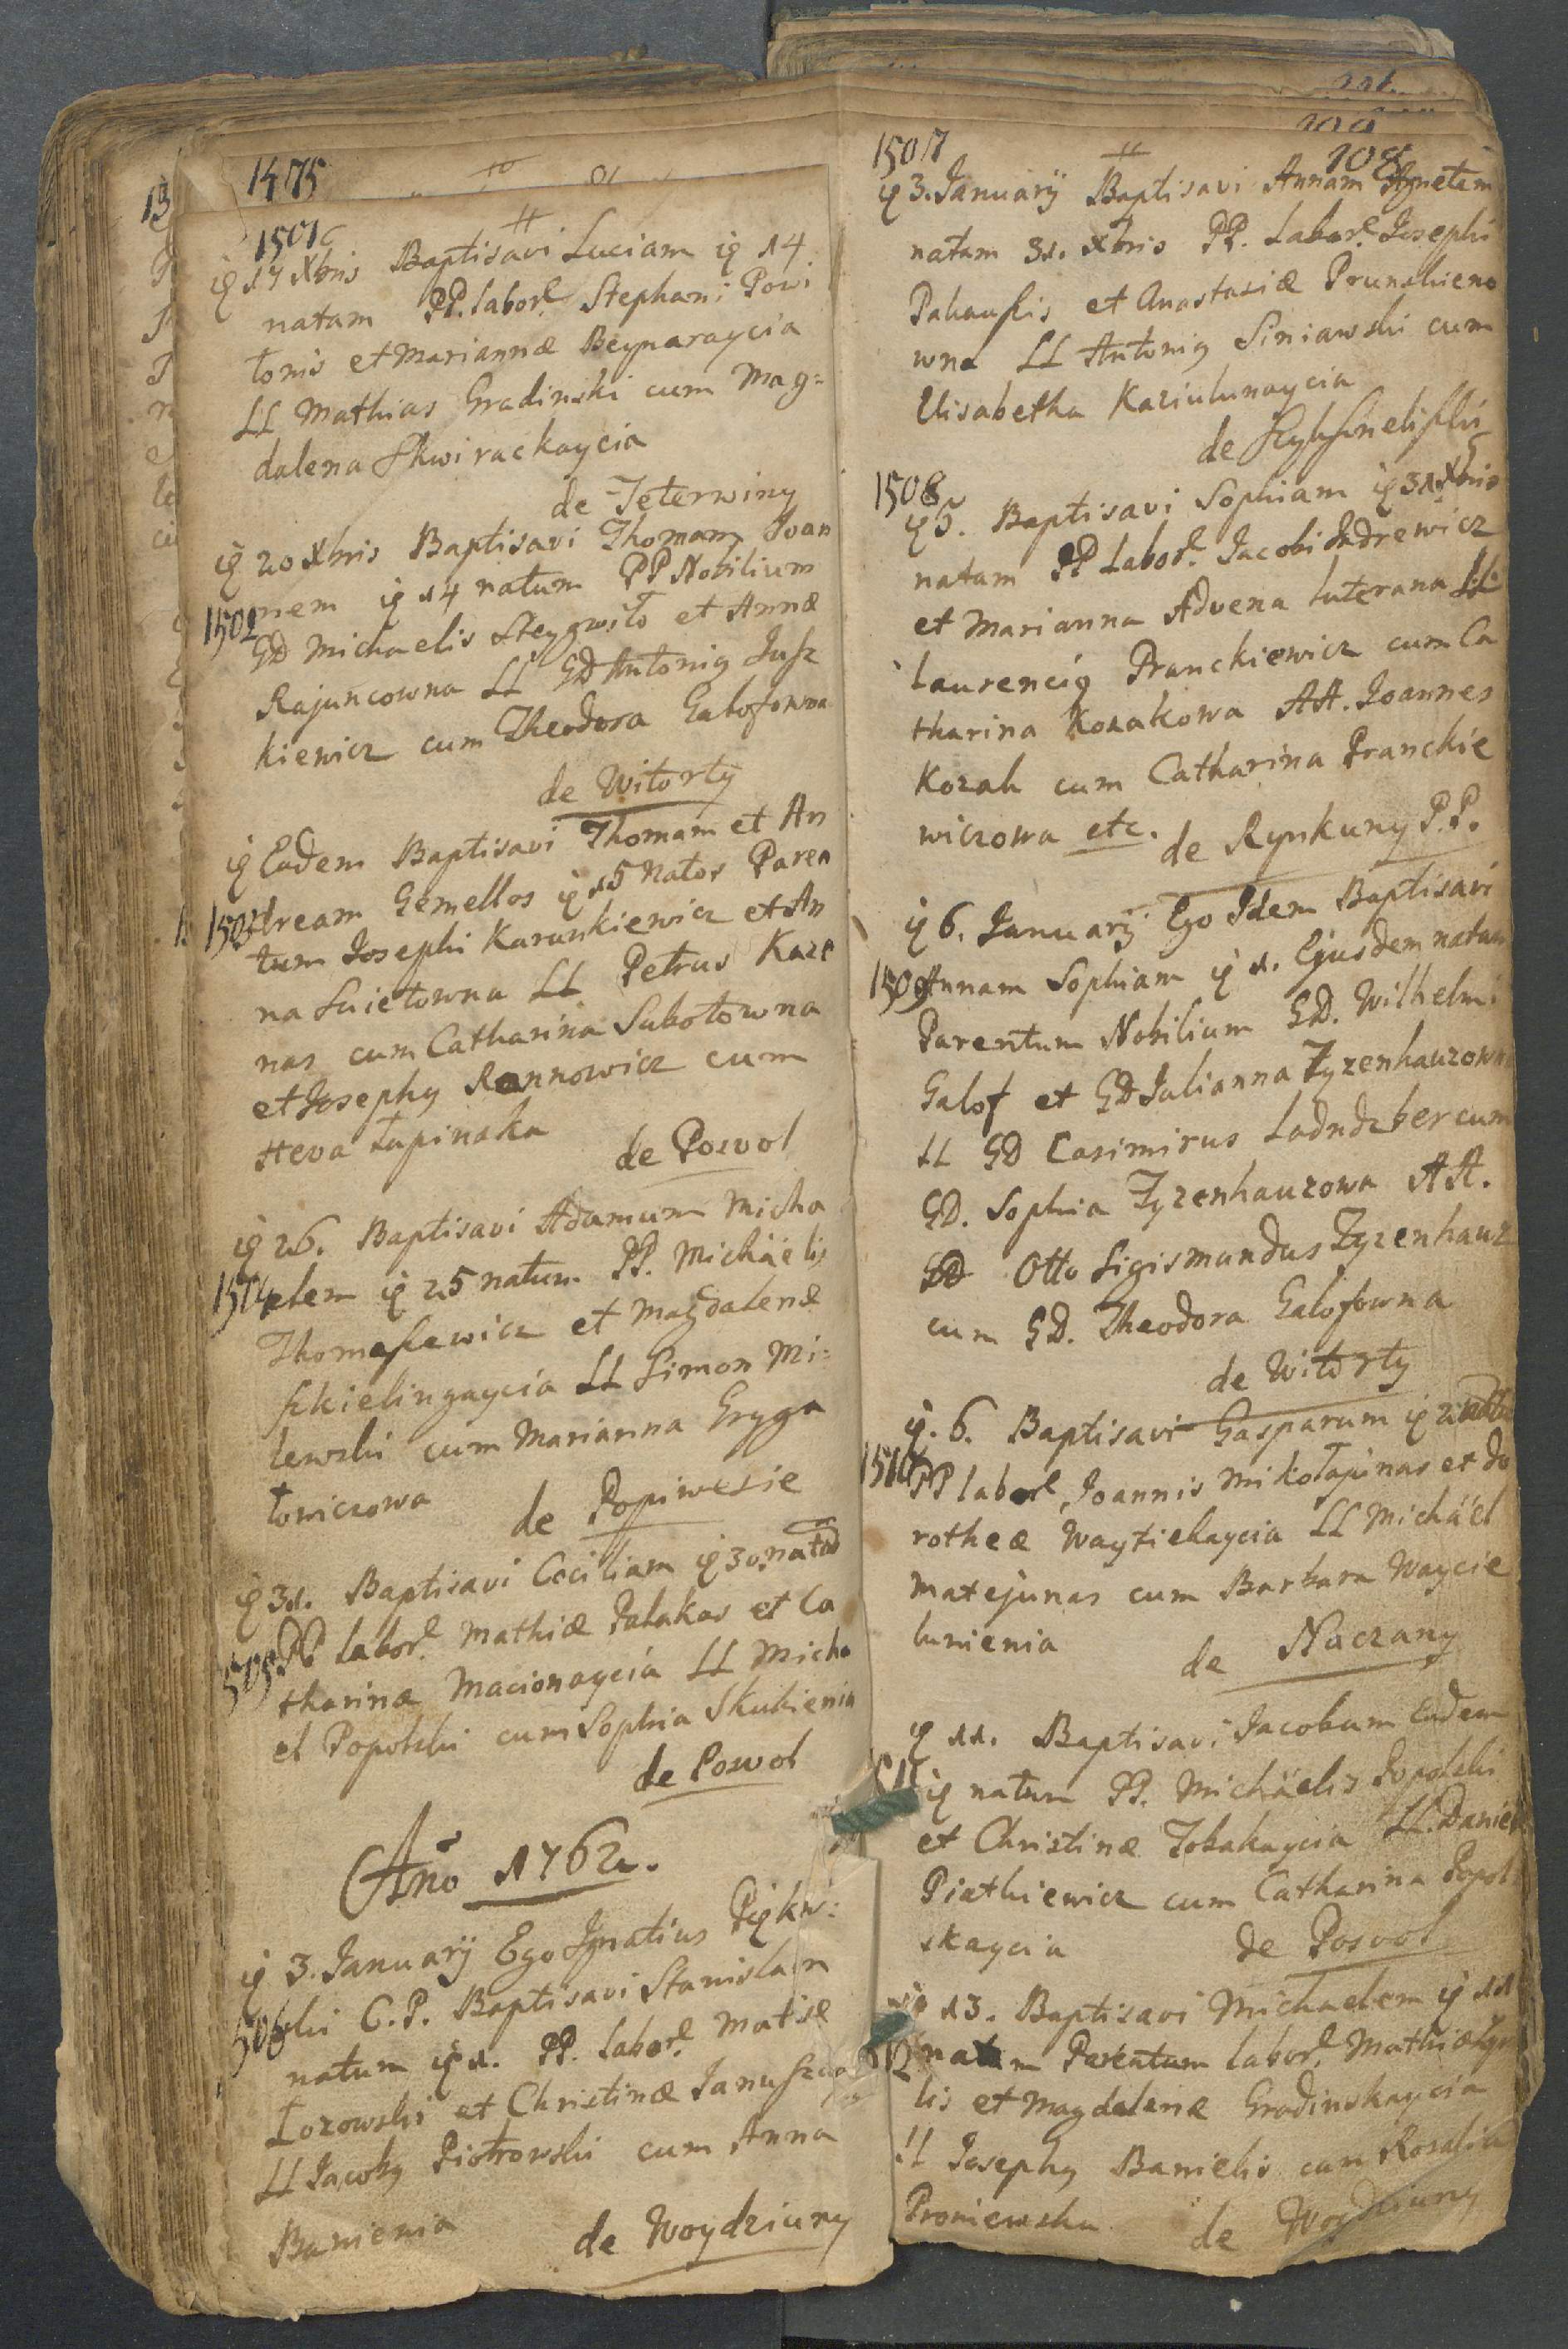 1475
1501
ig 17 Xbris Baptisavi Luciam ig 14
natam PP. labor. Stephani Powi
tonis et Mariannæ Beynaraycia
LL Mathias Gradinski cum Mag=
dalena Skwirackaycia
de Jeterwiny
ig 20 Xbris Baptisavi Thomam Joan
1502 nem ig 14 natum PP Nobilium
GD Michaelis Steygwiło et Annæ
Rajuncowna LL GD Antonig Jusz
kiewicz cum Theodora Galofowna
de Witorty
ig Eadem Baptisavi Thomam et An
1503 dream Gemellos ig 15 Natos Paren
tum Josephi Karunkiewicz et An
na Swietowna LL Petrus Kaze
nas cum Catharina Subotowna
et Josephy Rannowicz cum
Heva Łapinska
de Poswol
ig 26. Baptisavi Adamum Micha
1504 elem ig 25 natum PP. Michäelis
Thomaszewicz et Magdalenæ
szkielingaycia LL Simon Mi=
lewski cum Marianna Gryga
towiczowa
de Popiwesie
ig 31. Baptisavi Ceciliam ig 30. natam
505 PP labor. Mathiæ Jalakas et Ca
tharinæ Macionaycia LL Micha
el Popolski cum Sophia Skukienia
de Poswol
Año 1762.
ig 3. Januarÿ Ego Ignatius Pigkw=
506 ski C. P. Baptisavi Stanislam
natum ig 1. PP. labor. Matiæ
Łozowski et Christinæ Janusz
LL Jacoby Piotrowski cum Anna
Banienia
de Woydziuny
108
1507
ig 3. Januarÿ Baptisavi Annam Agnetem
natam 31. Xbris PP. Labor. Josephi
Pakauszis et Anastasiæ Prunskieno
wna LL Antonig Siniawski cum
Elisabetha Kaziulunaycia
de
1508
ig 5. Baptisavi Sophiam ig 31 Xbris
natam PP Labor. Jacobi Jndrewicz
et Marianna Advena luterana LL
Laurencig Pranckiewicz cum Ca
tharina Kozakowa AA. Joannes
Kozak cum Catharina Pranckie
wiczowa etc. de Rynkuny P.P.
ig 6. Januarÿ Ego Idem Baptisavi
1509 Annam Sophiam ig 1. Ejusdem natam
Parentum Nobilium GD. Wilhelmi
Galof et GD Julianna Zyzenhauzown
LL GD Casimirus Ladndzber cum
GD. Sophia Zyzenhauzowa AA.
GD Otto Sigismundus Zyzenhauz
cum GD. Theodora Galofowna
de Witorty
ig. 6. Baptisavi Gasparum ig 2 natum
1510 PP labor. Joannis Mikołajunas et Do
rotheæ Waytiekaycia LL Michäel
Matejunas cum Barbara Waycie
lunienia
de Naczany
ig 11. Baptisavi Jacobum Eadem
511 ig natum PP. Michäelis Popolski
et Christinæ Zobakaycia LL. Daniel
Piatkiewicz cum Catharina Popol
skaycia
de Posvol
ig 13. Baptisavi Michaelem ig 11
12 natum Parentum labor. Mathiæ
lis et Magdalenæ Gradinskaycia
LL Josephy Banielis cum Rosalia
Proniewska
de Woydziuny